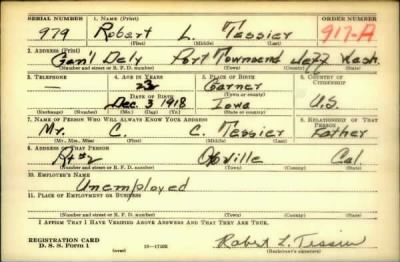 SERIAL NUMBER 1. NAME (Print) ORDER NUMBER
979 Robert L. Tessier 917-A
(First) (Middle) (Last)
2. ADDRESS (Print)
Gen'l Dely Port Townsend Jeff Wash.
(Number and street or R. F. D. number) (Town) (County) (State)
3. TELEPHONE 4. AGE IN YEARS 5. PLACE OF BIRTH 6. COUNTRY OF CITIZENSHIP
— 23 Garner
DATE OF BIRTH (Town or county)
Dec. 3 1918 Iowa U.S.
(Mo.) (Day) (Yr.) (State or country)
7. NAME OF PERSON WHO WILL ALWAYS KNOW YOUR ADDRESS 8. RELATIONSHIP OF THAT PERSON
Mr. C. C. Tessier Father
(Mr., Mrs., Miss) (First) (Middle) (Last)
9. ADDRESS OF THAT PERSON
Rt #2 Cal.
(Number and street or R. F. D. number) (Town) (County) (State)
10. EMPLOYER'S NAME
Unemployed
11. PLACE OF EMPLOYMENT OR BUSINESS
(Number and street or R. F. D. number) (Town) (County) (State)
I AFFIRM THAT I HAVE VERIFIED ABOVE ANSWERS AND THAT THEY ARE TRUE.
REGISTRATION CARD
D. S. S. Form 1 (over) Robert L. Tessier
(Registrant's signature)